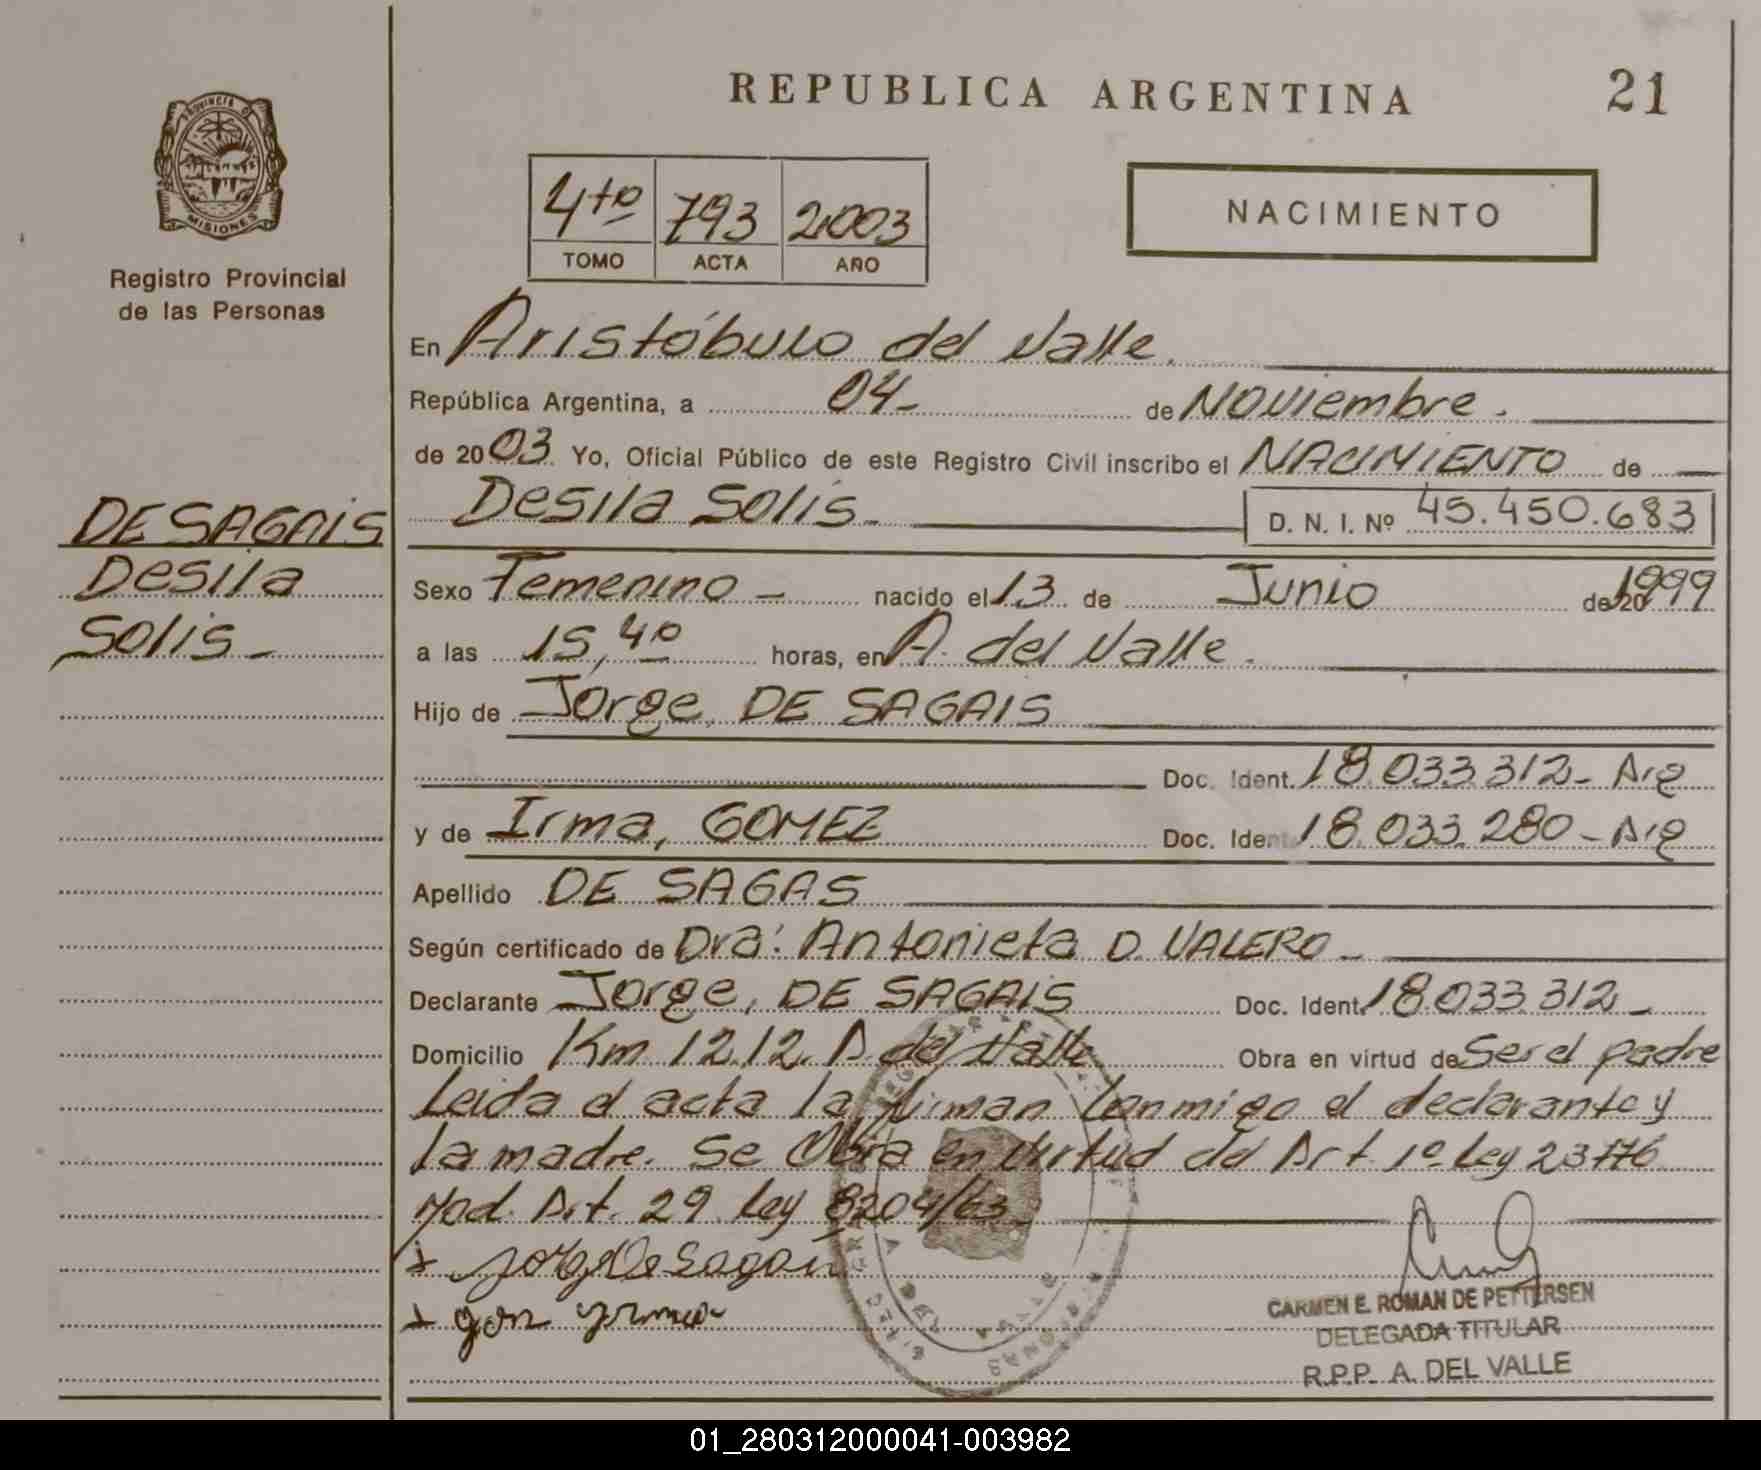 REPUBLICA ARGENTINA
21
PROVINCIA D
MISIONES
Registro Provincial
de las Personas
4to 793 2003
TOMO ACTA AÑO
NACIMIENTO
En Aristóbulo del Valle.
República Argentina, a 04- de Noviembre.
de 2003 Yo, Oficial Público de este Registro Civil inscribo el NACIMIENTO de
Desila Solis- D. N. I. Nº 45.450.683
DE SAGAIS
Desila
Solis-
Sexo Femenino - nacido el 13 de Junio de 20 1999
a las 15,40 horas, en A. del Valle.
Hijo de Jorge, DE SAGAIS
Doc. Ident. 18.033.312- Arg
y de Irma, GOMEZ Doc. Ident. 18.033.280- Arg
Apellido DE SAGAS
Según certificado de Dra: Antonieta D. VALERO-
Declarante Jorge, DE SAGAIS Doc. Ident. 18.033.312-
Domicilio Km 1212 A. del Valle Obra en virtud de Ser el padre
Leida el acta la firman conmigo el declarante y
la madre. Se Obra en virtud del Art. 1º Ley 23776
Mod. Art. 29 Ley 8204/63
CARMEN E. ROMAN DE PETTERSEN
DELEGADA TITULAR
R.P.P. A. DEL VALLE
01_280312000041-003982